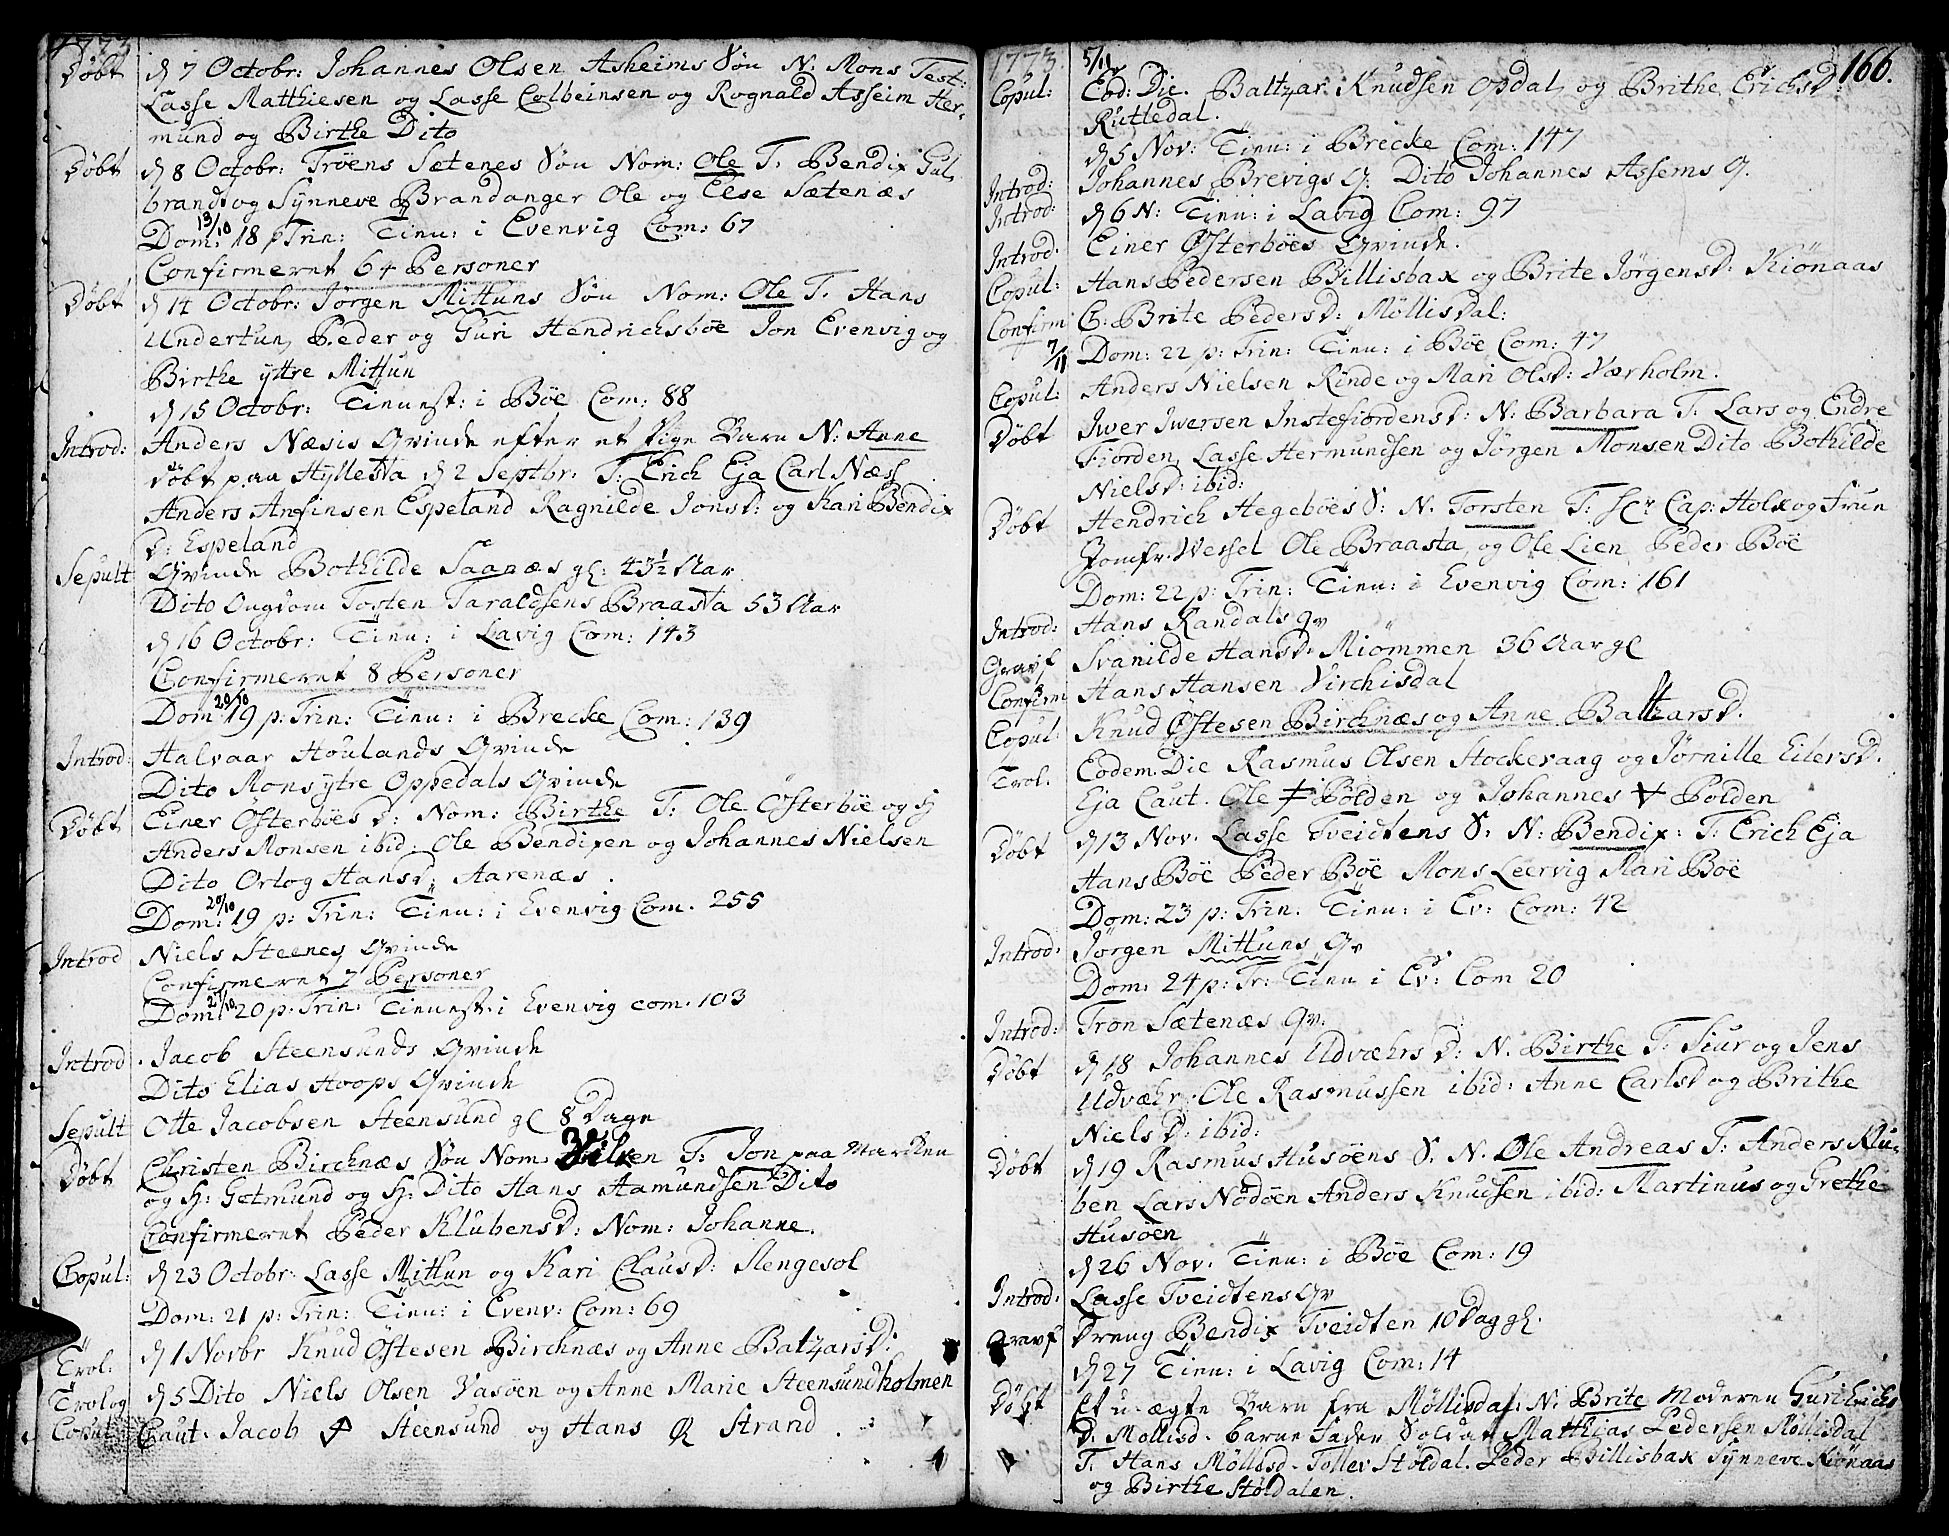 1773
Døbt d 7 Octobr: Johannes Olsen Asheims Søn N. Mons Test:
Lasse Matthiesen og Lasse Colbeinsen og Rognald Asseim Her-
mund og Birthe Dito
Døbt d 8 Octobr: Troens Sætenes Søn Nom: Ole T. Bendix Gul
brand og Synneve Brandanger Ole og Else Sætenæs
13/10
Dom: 18 p Trin: Tien: i Evenvig Com: 67
Confirmernt 64 Personer
Døbt d 14 Octobr: Jørgen Mittuns Søn Nom: Ole T. Hans
Undertun, Peder og Guri Hendrichsböe Jon Evenvig og
Birthe yttre Mittun
d 15 Octobr: Tienest: i Böe Com: 88
Introd: Anders Næsis Qvinde efter et Pige Barn N: Anne
døbt paa Hyllesta d 2 Septbr. T: Erich Eja Carl Næss
Anders Anfinsen Espeland Ragnilde Jonsd: og Kari Bendix
D: Espeland
Sepult Qvinde Bothilde Saanæs gl: 43½ Aar
Dito Ungdom Tosten Taraldsens Braasta 53 Aar
d 16 Octobr: Tien: i Lavig Com: 143
Confirmernt 8 Personer
20/10
Dom: 19 p: Trin: Tien: i Brecke Com: 139
Introd: Halvaar Houlands Qvinde
Dito Mons ytre Oppedals Qvinde
Døbt Einer Østerböes D: Nom: Birthe T: Ole Østerböe og H
Anders Monsen ibid: Ole Bendixen og Johannes Nielsen
Dito Ortog Hansd: Aarenæs
20/10
Dom: 19 p: Trin: Tien: i Evenvig Com. 255
Introd Niels Steenes Qvinde
Confirmernt 7 Personer
27/10
Dom: 20 p: Trin: Tienest: i Evenvig com: 103
Introd. Jacob Steensunds Qvinde
Dito Elias Hoops Qvinde
Sepult Otte Jacobsen Steensund gl 8 Dage
Døbt Christen Birchnæs Søn Nom: T: Jon paa Marchen
og H: Getmund og H: Dito Hans Aamundsen Dito
Confirmernt Peder Klubensd: Nom: Johanne.
Copul: d 23 Octobr: Lasse Mittun og Kari Clausd: Slengesol
Dom: 21 p: Trin: Tien: i Evenv: Com: 69
Trol: d 1 Novbr Knud Østesen Birchnæs og Anne Baltzarsd:
Trol og d 5 Dito Niels Olsen Vasöen og Anne Marie Steensundholmen
Copul: Caut. Jacob Steensund og Hans Strand
1773. 5/11 166.
Copul: Eod: Die. Baltzar Knudsen Opdal, og Brithe Erichsd:
Ruttedal.
d 5 Nov: Tien: i Brecke Com: 147
Introd: Johannes Brevigs Q. Dito Johannes Assems Q.
Introd: d 6 N: Tien: i Lavig Com: 97
Introd: Einer Østerböes Qvinde.
Copul: Hans Pedersen Billisbax og Brite Jørgensd: Kiönaas
Confirm: C. Brite Pedersd: Möllisdal:
7/11 Dom: 22 p: Trin: Tien: i Böe Com: 47
Copul: Anders Nielsen Rinde og Mari Olsd: Værholm.
Døbt Iwer Iwersen Instefiordensd: N: Barbara T. Lars og Endre
Fiorden, Lasse Hermundsen og Jørgen Monsen Dito Bothilde
Nielsd: ibid:
Døbt Hendrich Hegeböes S: N. Torsten T: Hr Cap: Holk og Frun
Jomfr: Wessel Ole Braasta, og Ole Lien Peder Böe
Dom: 22 p: Trin: Tien: i Evenvig Com: 161
Introd: Hans Randals Qv
Gravf Svanilde Hansd: Miömmen 36 Aar gl
Confirm Hans Hansen Virchisdal
Copul: Knud Østesen Birchnæs og Anne Baltzarsd.
Trol. Eodem Die Rasmus Olsen Stockevaag og Jørnille Eilersd.
Eja Caut. Ole Polden og Johannes Polden
Døbt d 13 Nov. Lasse Tveidtens S. N: Bendix: T: Erich Eja
Hans Böe Peder Böe Mons Leervig Mari Böe
Dom: 23 p: Trin: Tien: i Ev: Com: 42
Introd: Jørgen Mittuns Qv
Dom: 24 p: Tr: Tien i Ev: Com 20
Introd: Tron Sætenæs Qv.
Døbt d 18 Johannes Udvæhrs D: N. Birthe T: Siur og Jens
Udvæhr. Ole Rasmussen ibid: Anne Carlsd og Brithe
Nielsd: ibid:
Døbt d 19 Rasmus Husöens S. N. Ole Andreas T: Anders Klu-
ben Lars Nödöen Anders Knudsen ibid: Martinus og Grethe
Husöen
d 26 Nov. Tien: i Böe Com: 19
Introd: Lasse Tveidtens Qv
Gravf Dreng Bendix Tveidten 10 Dag gl.
d 27 Tien: i Lavig Com: 14
Døbt Et u-ægte Barn fra Möllisdal: N: Brite Moderen Guri Erichs
D. Mollisd. Barne Fader Soldat Matthias Pedersen Möllisdal
T. Hans Möllesd. Tollev Stöldal. Peder Billisbax Synneve Kiönaas
og Birthe Stöldalen.